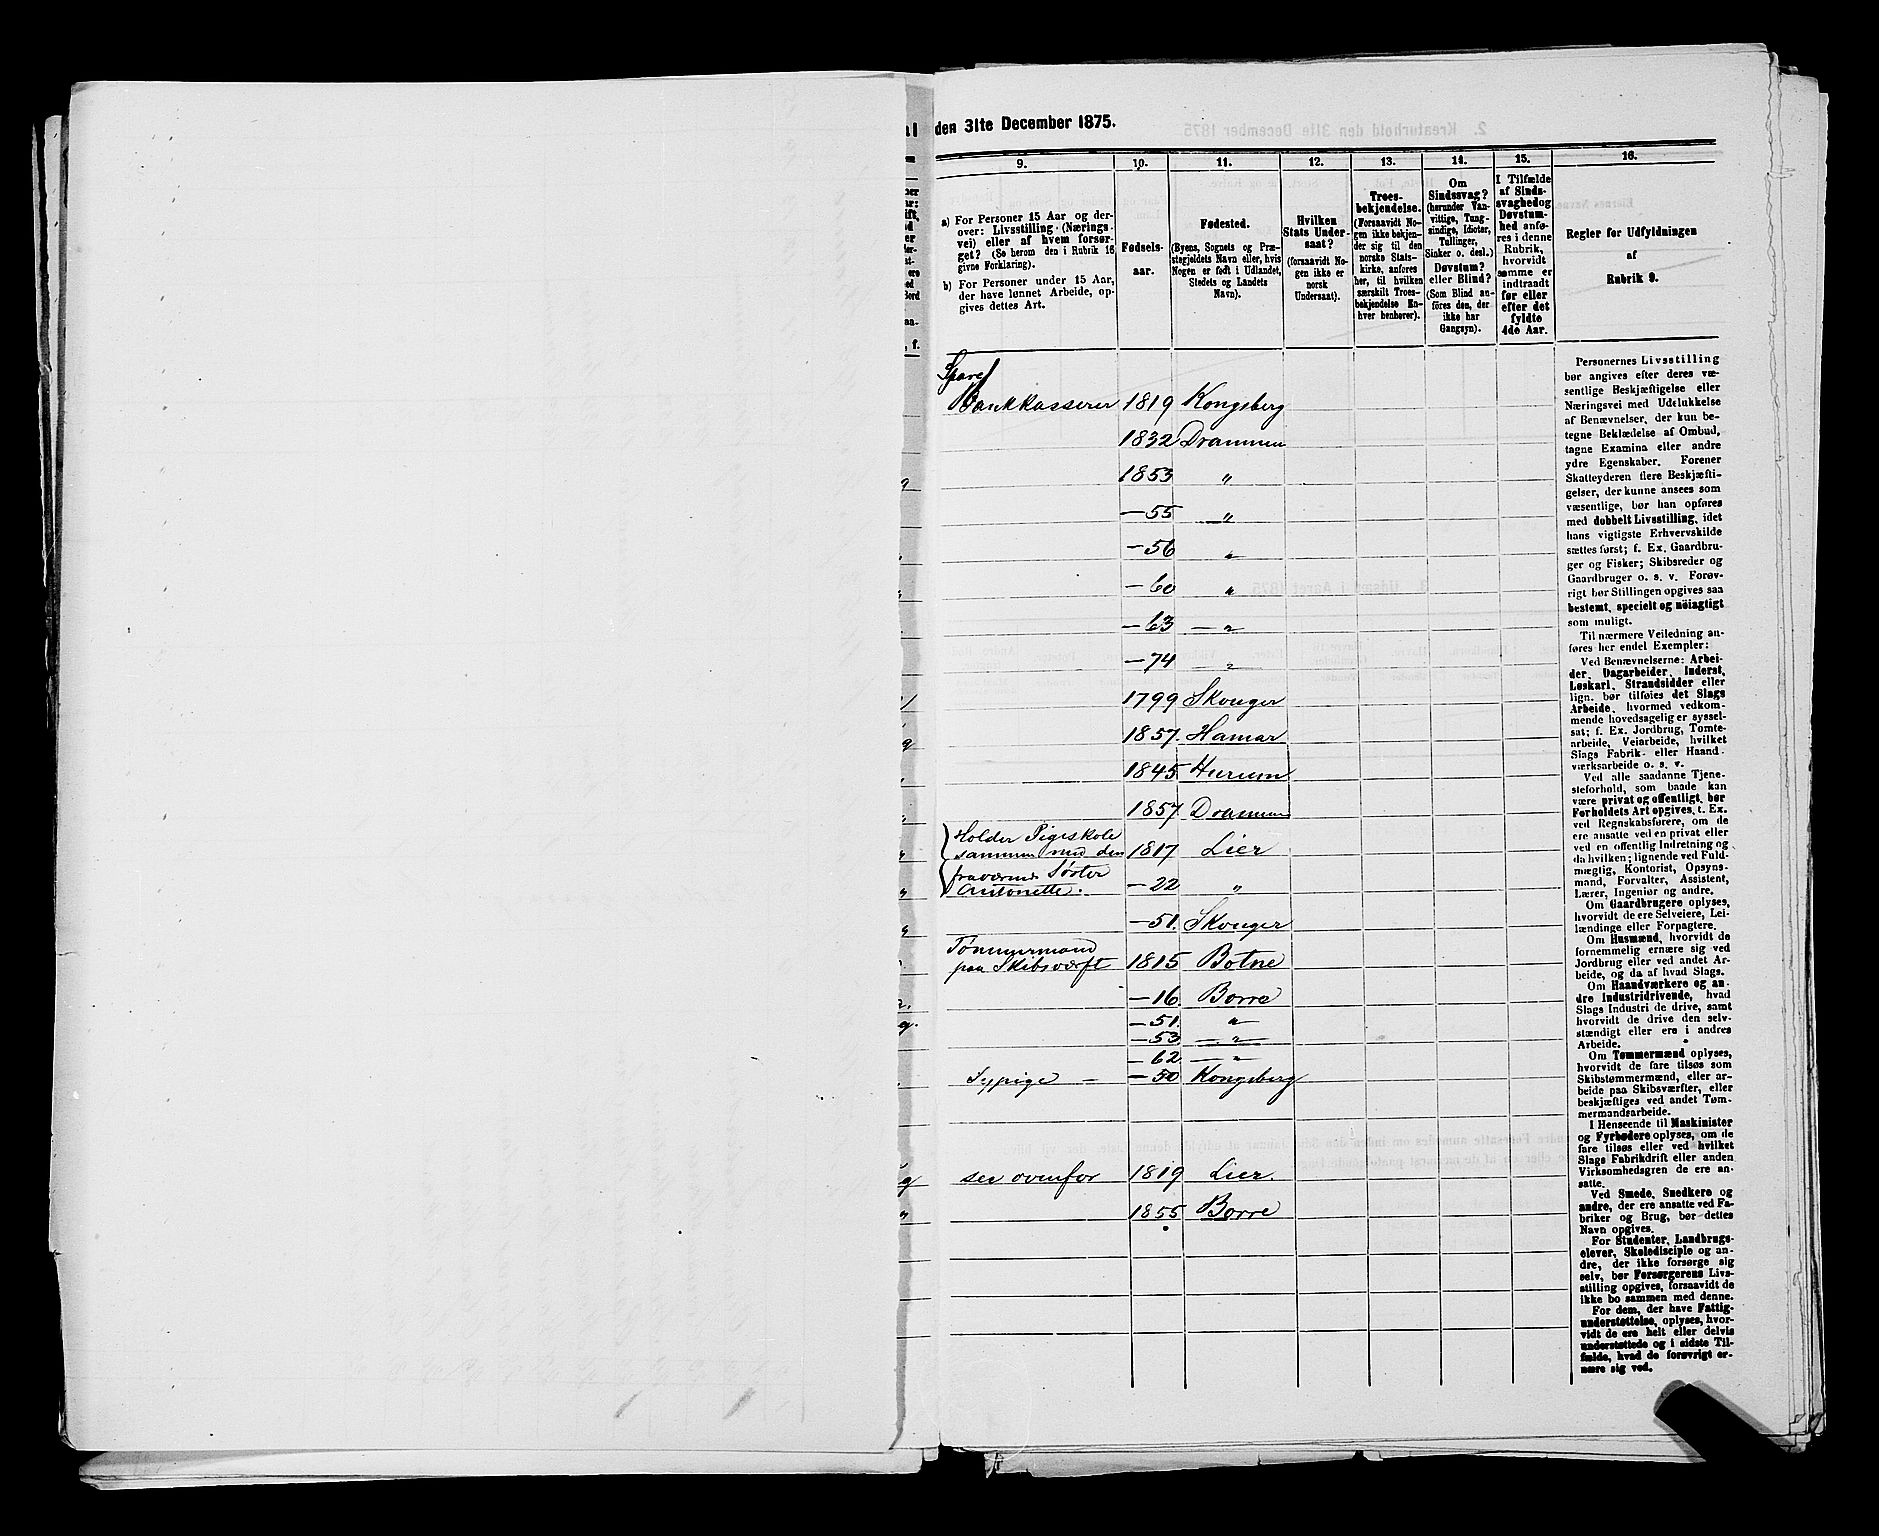 den 31te December 1875.
9. 10. 11. 12. 13. 14. 15. 16.
a) For Personer 15 Aar og derover: Livsstilling (Næringsvei) eller af hvem forsørget? (Se herom den i Rubrik 16 givne Forklaring).
b) For Personer under 15 Aar, der have lønnet Arbeide, opgives dettes Art.
Fødselsaar.
Fødested.
(Byens, Sognets og Præstegjeldets Navn eller, hvis Nogen er født i Udlandet, Stedets og Landets Navn).
Hvilken Stats Undersaat?
(forsaavidt Nogen ikke er norsk Undersaat).
Troesbekjendelse.
(Forsaavidt Nogen ikke bekjender sig til den norske Statskirke, anføres her, til hvilken særskilt Troesbekjendelse Enhver henhører).
Om Sindssvag?
(herunder Vanvittige, Tungsindige, Idioter, Tullinger, Sinker o. desl.)
Døvstum?
eller Blind?
(Som Blind anføres den, der ikke har Gangsyn).
I Tilfælde af Sindssvaghed og Døvstumhed anføres i denne Rubrik, hvorvidt samme er indtraadt før eller efter det fyldte 4de Aar.
Regler for Udfyldningen
af
Rubrik 9.
Spare
Bankkasserer 1819 Kongsberg
1832 Drammen
1853 "
—55 "
—56 "
—60 "
—63 — "
—74 — "
1799 Skouger
1857. Hamar
1845 Hurum
1857. Drammen
Holder Pigeskole
sammen med den 1817 Lier
fraværende Søster
Antonette. —22 "
—51. Skouger
Tømmermand
paa Skibsværft 1815 Botne
—16. Borre
—51. "
—53 — "
—62 — "
Sypige — —50 Kongsberg
see ovenfor 1819 Lier.
1855 Borre
Personernes Livsstilling
bør angives efter deres væ-
sentlige Beskjæftigelse eller
Næringsvei med Udelukkelse
af Benævnelser, der kun be-
tegne Beklædelse af Ombud,
tagne Examina eller andre
ydre Egenskaber. Forener
Skatteyderen flere Beskjæfti-
gelser, der kunne ansees som
væsentlige, bør han opføres
med dobbelt Livsstilling, idet
hans vigtigste Erhvervskilde
sættes først; f. Ex. Gaardbru-
ger og Fisker; Skibsreder og
Gaardbruger o. s. v. Forøv-
rigt bør Stillingen opgives saa
bestemt, specielt og nöiagtigt
som muligt.
Til nærmere Veiledning an-
føres her endel Exempler:
Ved Benævnelserne: Arbei-
der, Dagarbeider, Inderst,
Løskarl, Strandsidder eller
lign. bør tilføies det Slags
Arbeide, hvormed vedkom-
mende hovedsagelig er syssel-
sat; f. Ex. Jordbrug, Tomte-
arbeide, Veiarbeide, hvilket
Slags Fabrik- eller Haand-
værksarbeide o. s. v.
Ved alle saadanne Tjene-
steforhold, som baade kan
være privat og offentligt, bør
Forholdets Art opgives, t. Ex.
ved Regnskabsførere, om de
ere ansatte ved en privat eller
ved en offentlig Indretning og
da hvilken; lignende ved Fuld-
mægtig, Kontorist, Opsyns-
mand, Forvalter, Assistent,
Lærer, Ingeniør og andre.
Om Gaardbrugere oplyses,
hvorvidt de ere Selveiere, Lei-
lændinge eller Forpagtere.
Om Husmænd, hvorvidt de
fornemmelig ernære sig ved
Jordbrug eller ved andet Ar-
beide, og da af hvad Slags.
Om Haandværkere og an-
dre Industridrivende, hvad
Slags Industri de drive, samt
hvorvidt de drive den selv-
stændigt eller ere i andres
Arbeide.
Om Tømmermænd oplyses,
hvorvidt de fare tilsøs som
Skibstømmermænd, eller ar-
beide paa Skibsværfter, eller
beskjæftiges ved andet Tøm-
mermandsarbeide.
I Henseende til Maskinister
og Fyrbødere oplyses, om de
fare tilsøs eller ved hvilket
Slags Fabrikdrift eller anden
Virksomhedsgren de ere an-
satte.
Ved Smede, Snedkere og
andre, der ere ansatte ved Fa-
briker og Brug, bør dettes
Navn opgives.
For Studenter, Landbrugs-
elever, Skoledisciple og an-
dre, der ikke forsørge sig
selv, bør Forsørgerens Livs-
stilling opgives, forsaavidt de
ikke bo sammen med denne.
For dem, der have Fattig-
understøttelse, oplyses, hvor-
vidt de ere helt eller delvis
understøttede og i sidste Til-
fælde, hvad de forøvrigt er-
nære sig ved.